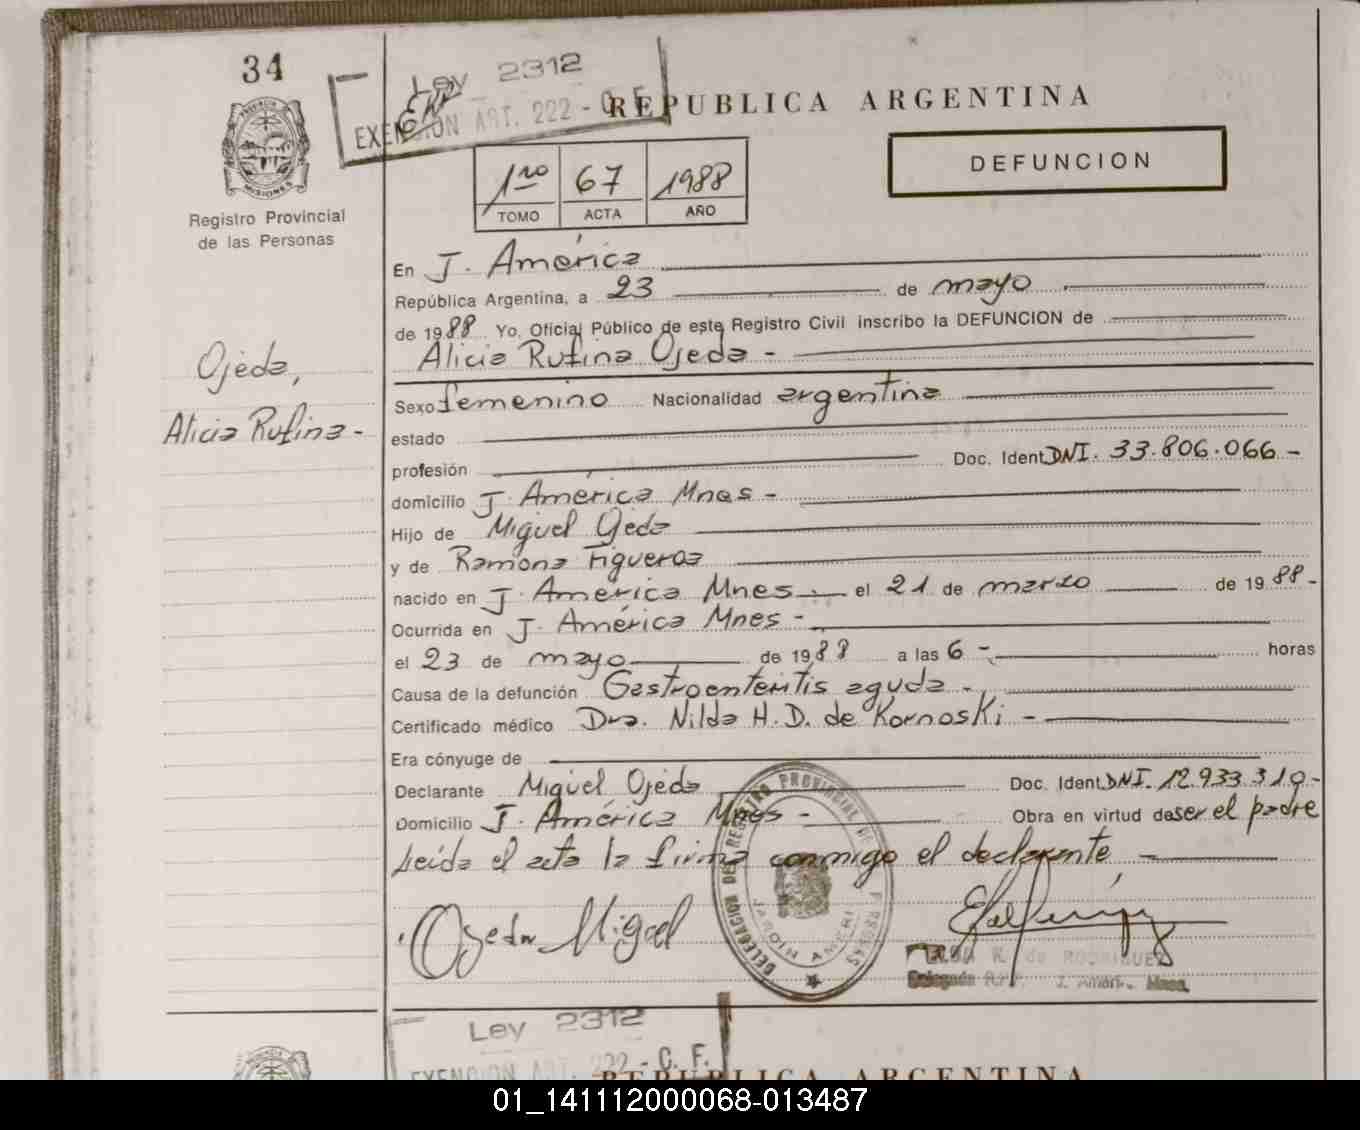 34
Ley 2312
EXENCION ART. 222 - C. F.
REPUBLICA ARGENTINA
DEFUNCION
1ro 67 1988
TOMO ACTA AÑO
MISIONES
Registro Provincial
de las Personas
En J. América
República Argentina, a 23 de mayo
de 1988 Yo, Oficial Público de este Registro Civil inscribo la DEFUNCION de
Alicia Rufina Ojeda -
Ojeda,
Alicia Rufina -
Sexo femenino Nacionalidad argentina
estado
profesión Doc. Ident DNI. 33.806.066 -
domicilio J. América Mnes -
Hijo de Miguel Ojeda
y de Ramona Figueroa
nacido en J. América Mnes. el 21 de marzo de 1988 -
Ocurrida en J. América Mnes -
el 23 de mayo de 1988 a las 6 - horas
Causa de la defunción Gastroenteritis aguda -
Certificado médico Dra. Nilda H. D. de Kornoski -
Era cónyuge de
Declarante Miguel Ojeda Doc. Ident DNI. 12.933.319 -
Domicilio J. América Mnes - Obra en virtud de ser el padre
Leída el acta la firma conmigo el declarante -
DELEGACION DEL REGISTRO PROVINCIAL DE
JARDIN AMERI
Ojeda Miguel
ELSA K. de RODRIGUEZ
Delegada R.P.P. J. Améri. Mnes.
Ley 2312
EXENCION ART. 222 - C. F.
REPUBLICA ARGENTINA
01_141112000068-013487